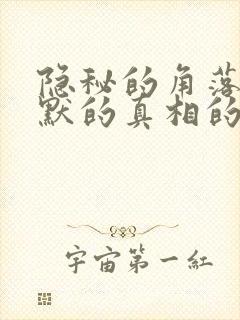 隐秘的角落
默的真相的
宇宙第一紅